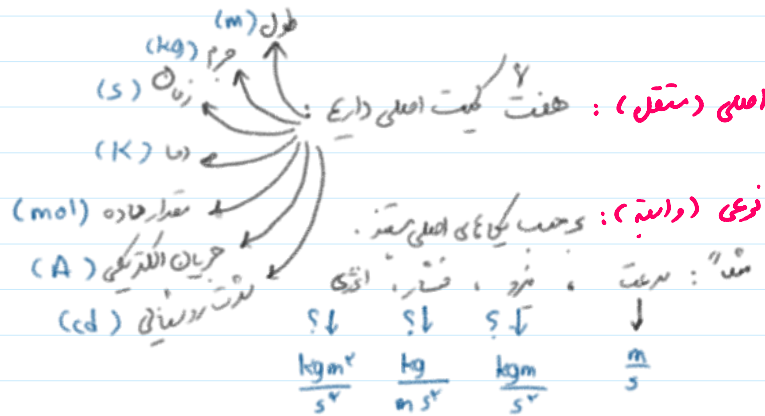 اصلی (مستقل): هفت ۷ کمیت اصلی داریم:
طول (m)
جرم (kg)
زمان (s)
دما (K)
مقدار ماده (mol)
جریان الکتریکی (A)
شدت روشنایی (cd)
فرعی (وابسته): برحسب یکاهای اصلی هستند.
مثلاً: سرعت، نیرو، فشار، انرژی
↓ ؟↓ ؟↓ ؟↓
m/s kgm/s² kg/ms² kgm²/s²